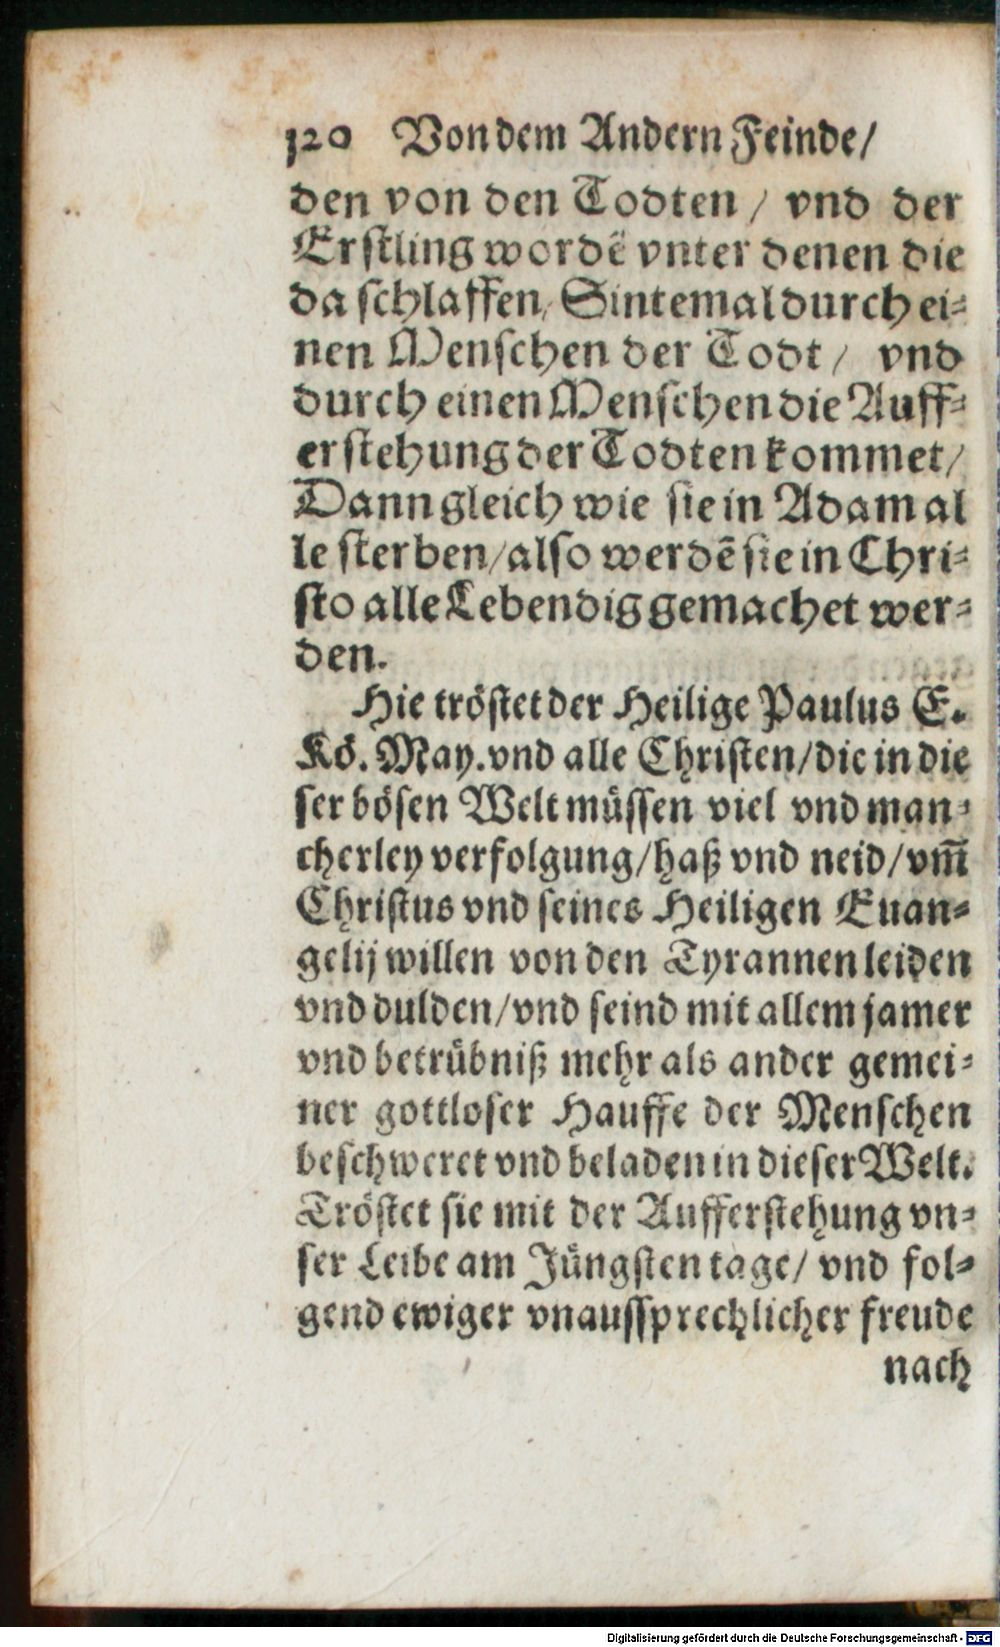 120 Von dem Andern Feinde/
den von den Todten / vnd der
Erstling wordẽ vnter denen die
da schlaffen/ Sintemal durch ei-
nen Menschen der Todt / vnd
durch einen Menschen die Auff-
erstehung der Todten kommet/
Dann gleich wie sie in Adam al
le sterben/also werdẽ sie in Chri-
sto alle Lebendig gemachet wer-
den.
Hie tröstet der Heilige Paulus E.
Kö. May. vnd alle Christen/die in die
ser bösen Welt müssen viel vnd man-
cherley verfolgung/haß vnd neid/vm̃
Christus vnd seines Heiligen Euan-
gelij willen von den Tyrannen leiden
vnd dulden/vnd seind mit allem jamer
vnd betrübniß mehr als ander gemei-
ner gottloser Hauffe der Menschen
beschweret vnd beladen in dieser Welt.
Tröstet sie mit der Aufferstehung vn-
ser Leibe am Jüngsten tage/ vnd fol-
gend ewiger vnaussprechlicher freude
nach
Digitalisierung gefördert durch die Deutsche Forschungsgemeinschaft - DFG